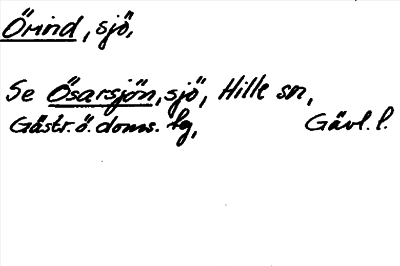 Örind, sjö,
Se Ösarsjön, sjö, Hille sn,
Gästr. ö. doms. lg, Gävl. l.